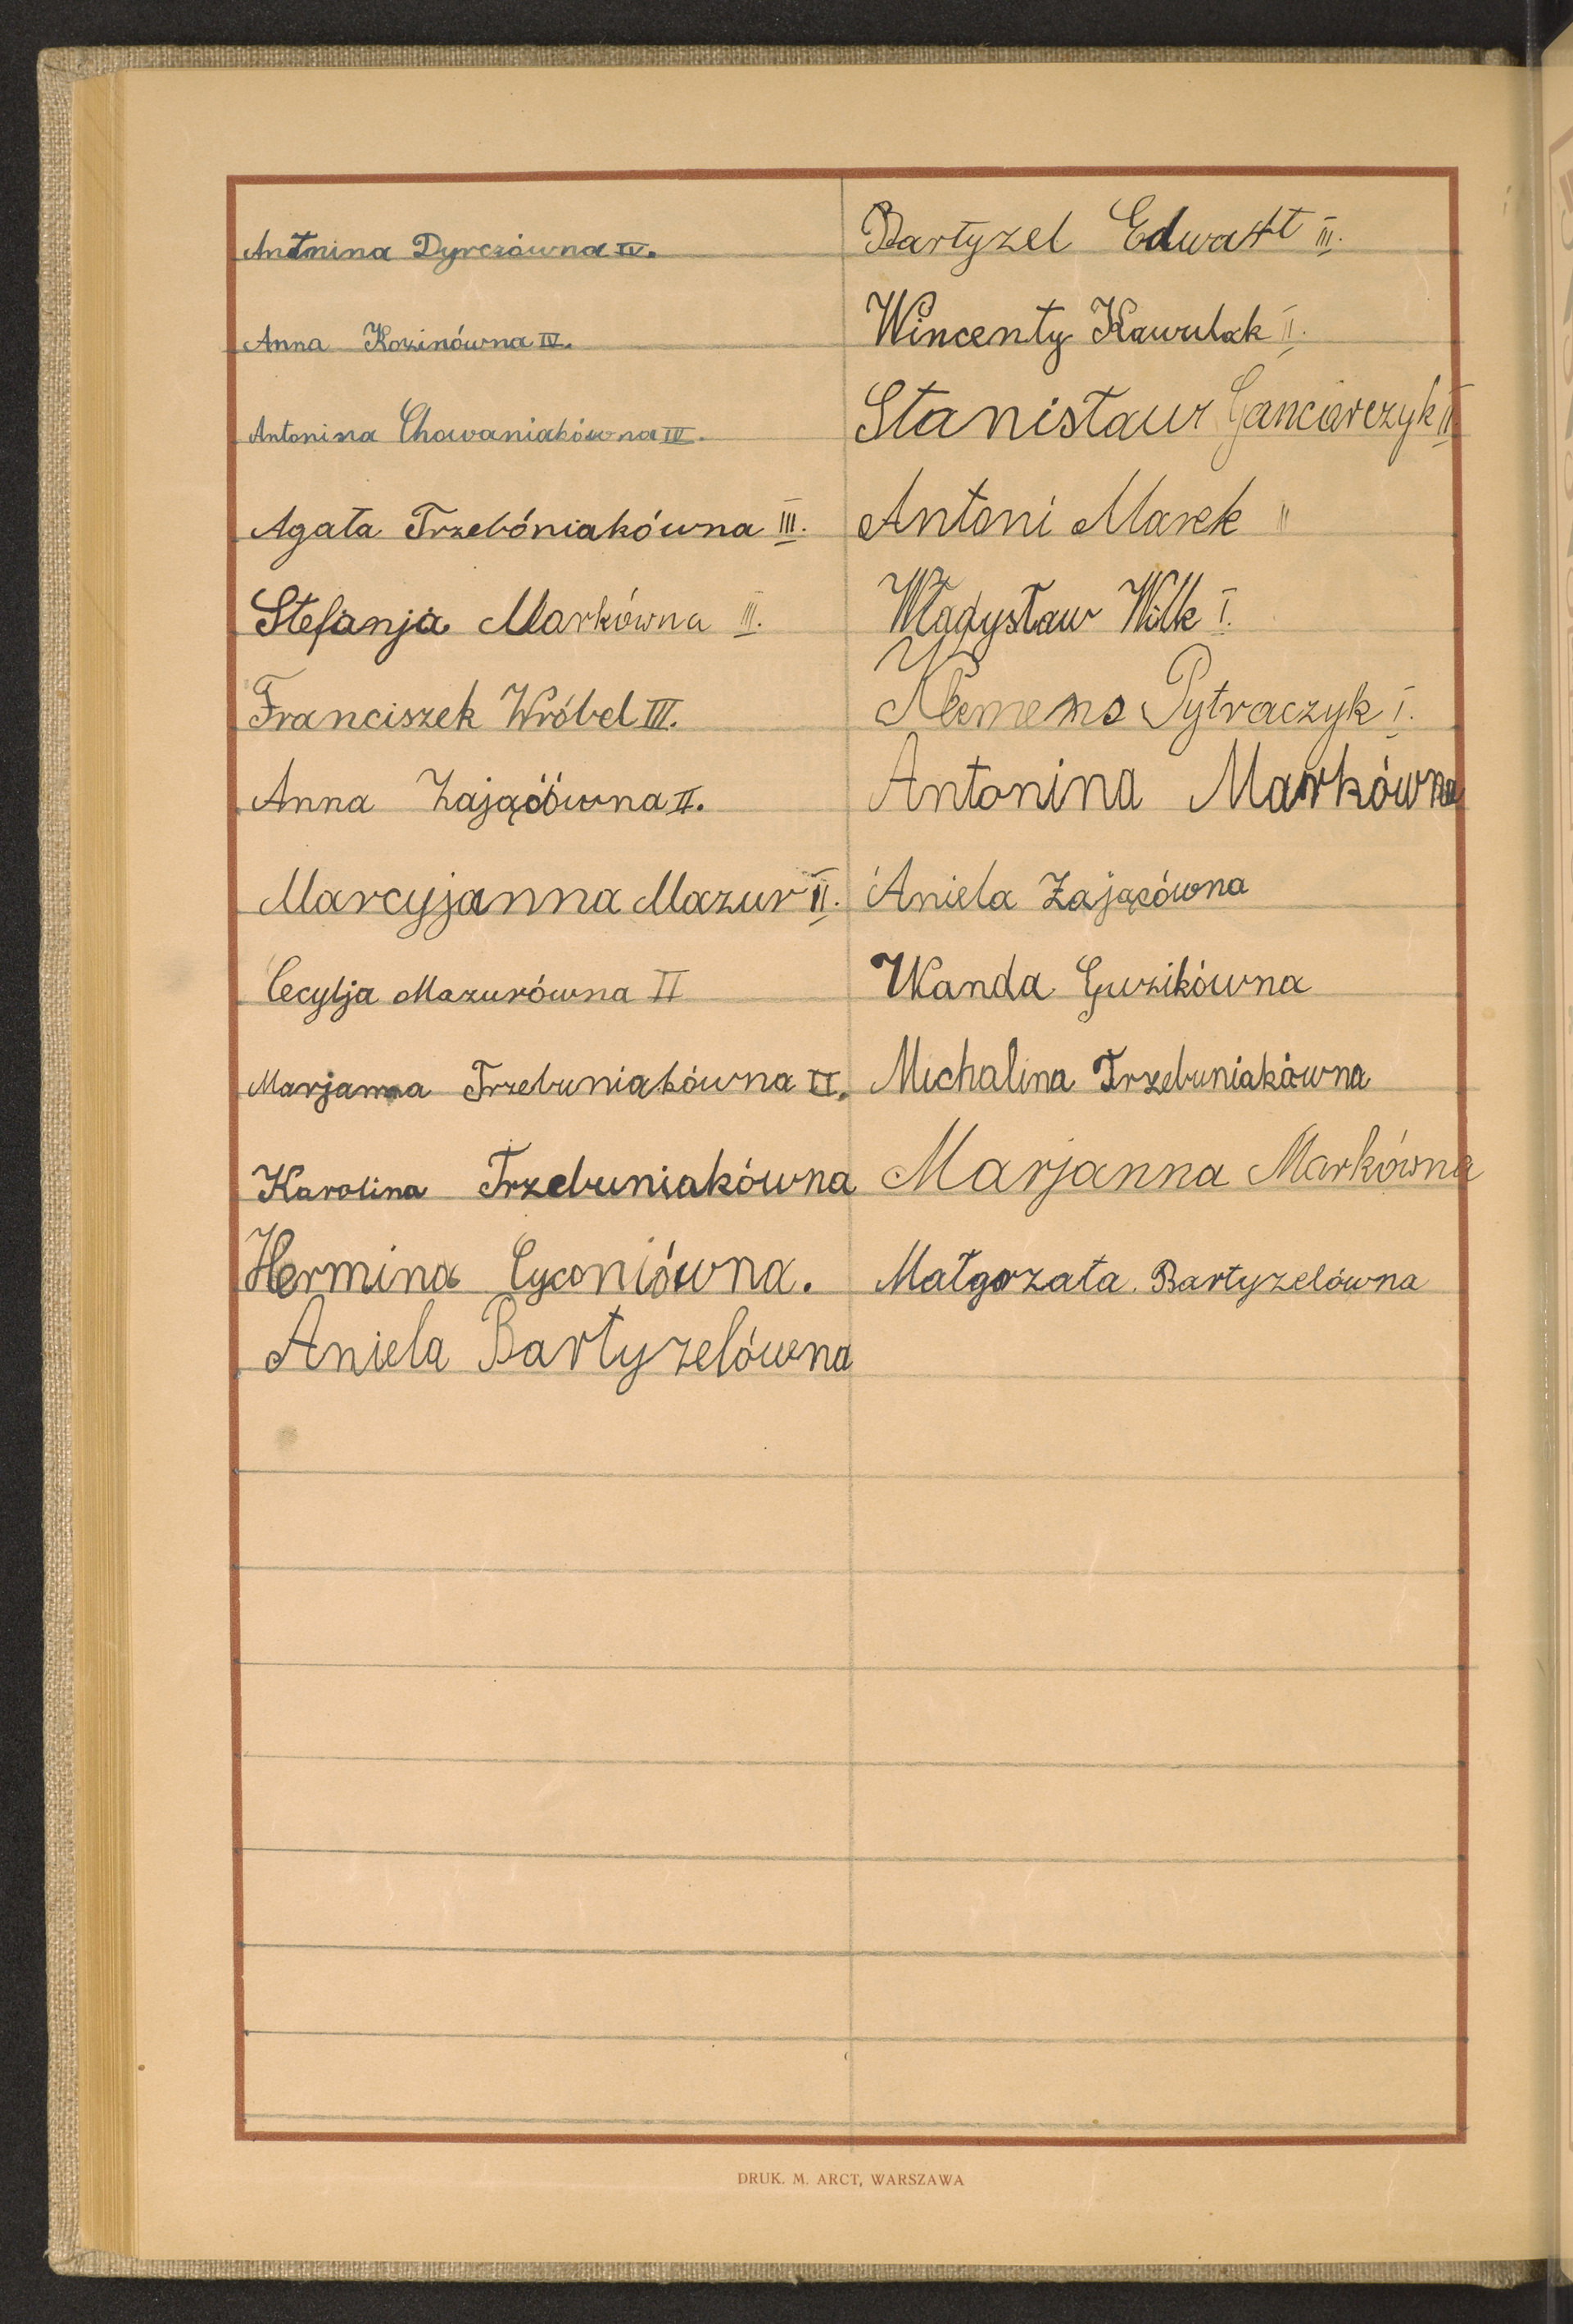 Antonina Dyrczówna IV.
Anna Kozinówna IV.
Antonina Chowaniakówna III.
Agata Trzebóniakówna III.
Stefanja Markówna III.
Franciszek Wróbel III.
Anna Zającówna II.
Marcyjanna Mazur II.
Cecylja Mazurówna II
Marjanna Trzebuniakówna II.
Karolina Trzebuniakówna
Hermina Cyconiówna.
Aniela Bartyzelówna
Bartyzel Edwart III.
Wincenty Kawulak II.
Stanisław Gancarczyk II
Antoni Marek II
Władysław Wilk I.
Klemens Pytraczyk I.
Antonina Markówna
Aniela Zającówna
Wanda Guzikówna
Michalina Trzebuniakówna
Marjanna Markówna
Małgorzata Bartyzelówna
DRUK. M. ARCT, WARSZAWA